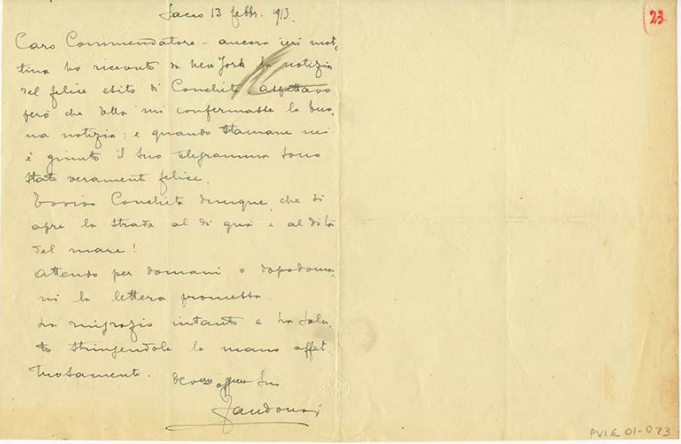 Sacco 13 febbr. 913.
23
Caro Commendatore - ancora ieri mat-
tina ho ricevuto da New York la notizia
del felice esito di Conchita. Aspettavo
però che Ella mi confermasse la buo-
na notizia: e quando stamane mi
è giunto il Suo telegramma sono
stato veramente felice.
Evviva Conchita dunque, che si
apre la strada al di qua e al di là
del mare!
Attendo per domani o dopodoma-
ni la lettera promessa.
La ringrazio intanto e La salu-
to stringendole la mano affet-
tuosamente.
Suo
Zandonai
PVIG 01-073